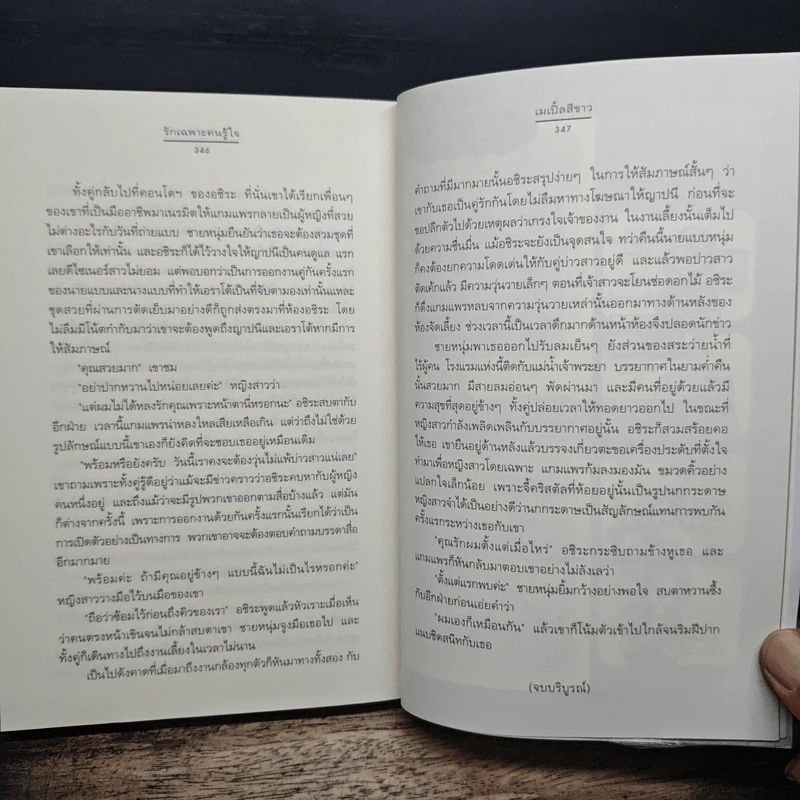 รักเฉพาะคนรู้ใจ
346
ทั้งคู่กลับไปที่คอนโดฯ ของอชิระ ที่นั่นเขาได้เรียกเพื่อนๆ
ของเขาที่เป็นมืออาชีพมาเนรมิตให้แกมแพรกลายเป็นผู้หญิงที่สวย
ไม่ต่างอะไรกับวันที่ถ่ายแบบ ชายหนุ่มยืนยันว่าเธอจะต้องสวมชุดที่
เขาเลือกให้เท่านั้น และอชิระก็ได้ไว้วางใจให้ญาปนีเป็นคนดูแล แรก
เลยดีไซเนอร์สาวไม่ยอม แต่พอบอกว่าเป็นการออกงานคู่กันครั้งแรก
ของนายแบบและนางแบบที่ทำให้เอราโต้เป็นที่จับตามองเท่านั้นแหละ
ชุดสวยที่ผ่านการตัดเย็บมาอย่างดีก็ถูกส่งตรงมาที่ห้องอชิระ โดย
ไม่ลืมมีโน้ตกำกับมาว่าเขาจะต้องพูดถึงญาปนีและเอราโต้หากมีการ
ให้สัมภาษณ์
"คุณสวยมาก" เขาชม
"อย่าปากหวานไปหน่อยเลยค่ะ" หญิงสาวว่า
"แต่ผมไม่ได้หลงรักคุณเพราะหน้าตานี่หรอกนะ" อชิระสบตากับ
อีกฝ่าย เวลานี้แกมแพรน่าหลงใหลเสียเหลือเกิน แต่ว่าถึงไม่ใช่ด้วย
รูปลักษณ์แบบนี้เขาเองก็ยังคิดที่จะชอบเธออยู่เหมือนเดิม
"พร้อมหรือยังครับ วันนี้เราคงจะต้องวุ่นไม่แพ้บ่าวสาวแน่เลย"
เขาถามเพราะทั้งคู่รู้ดีอยู่ว่าแม้จะมีข่าวคราวว่าอชิระคบหากับผู้หญิง
คนหนึ่งอยู่ และถึงแม้ว่าจะมีรูปพวกเขาออกตามสื่อบ้างแล้ว แต่มัน
ก็ต่างจากครั้งนี้ เพราะการออกงานด้วยกันครั้งแรกนั้นเรียกได้ว่าเป็น
การเปิดตัวอย่างเป็นทางการ พวกเขาอาจจะต้องตอบคำถามบรรดาสื่อ
อีกมากมาย
"พร้อมค่ะ ถ้ามีคุณอยู่ข้างๆ แบบนี้ฉันไม่เป็นไรหรอกค่ะ"
หญิงสาววางมือไว้บนมือของเขา
"ถือว่าซ้อมไว้ก่อนถึงคิวของเรา" อชิระพูดแล้วหัวเราะเมื่อเห็น
ว่าคนตรงหน้าเขินจนไม่กล้าสบตาเขา ชายหนุ่มจูงมือเธอไป และ
ทั้งคู่ก็เดินทางไปถึงงานเลี้ยงในเวลาไม่นาน
เป็นไปดังคาดที่เมื่อมาถึงงานกล้องทุกตัวก็หันมาทางทั้งสอง กับ
เมเปิ้ลสีขาว
347
คำถามที่มีมากมายนั้นอชิระสรุปง่ายๆ ในการให้สัมภาษณ์สั้นๆ ว่า
เขากับเธอเป็นคู่รักกันโดยไม่ลืมหาทางโฆษณาให้ญาปนี ก่อนที่จะ
ขอปลีกตัวไปด้วยเหตุผลว่าเกรงใจเจ้าของงาน ในงานเลี้ยงนั้นเต็มไป
ด้วยความชื่นมื่น แม้อชิระจะยังเป็นจุดสนใจ ทว่าคืนนี้นายแบบหนุ่ม
ก็คงต้องยกความโดดเด่นให้กับคู่บ่าวสาวอยู่ดี และแล้วพอบ่าวสาว
ตัดเค้กแล้ว มีความวุ่นวายเล็กๆ ตอนที่เจ้าสาวจะโยนช่อดอกไม้ อชิระ
ก็ดึงแกมแพรหลบจากความวุ่นวายเหล่านั้นออกมาทางด้านหลังของ
ห้องจัดเลี้ยง ช่วงเวลานี้เป็นเวลาดึกมากด้านหน้าห้องจึงปลอดนักข่าว
ชายหนุ่มพาเธอออกไปรับลมเย็นๆ ยังส่วนของสระว่ายน้ำที่
ไร้ผู้คน โรงแรมแห่งนี้ติดกับแม่น้ำเจ้าพระยา บรรยากาศในยามค่ำคืน
นั้นสวยมาก มีสายลมอ่อนๆ พัดผ่านมา และมีคนที่อยู่ด้วยแล้วมี
ความสุขที่สุดอยู่ข้างๆ ทั้งคู่ปล่อยเวลาให้ทอดยาวออกไป ในขณะที่
หญิงสาวกำลังเพลิดเพลินกับบรรยากาศอยู่นั้น อชิระก็สวมสร้อยคอ
ให้เธอ เขายืนอยู่ด้านหลังแล้วบรรจงเกี่ยวตะขอเครื่องประดับที่ตั้งใจ
ทำมาเพื่อหญิงสาวโดยเฉพาะ แกมแพรก้มลงมองมัน ขมวดคิ้วอย่าง
แปลกใจเล็กน้อย เพราะจี้คริสตัลที่ห้อยอยู่นั้นเป็นรูปนกกระดาษ
หญิงสาวจำได้เป็นอย่างดีว่านกกระดาษเป็นสัญลักษณ์แทนการพบกัน
ครั้งแรกระหว่างเธอกับเขา
"คุณรักผมตั้งแต่เมื่อไหร่" อชิระกระซิบถามข้างหูเธอ และ
แกมแพรก็หันกลับมาตอบเขาอย่างไม่ลังเลว่า
"ตั้งแต่แรกพบค่ะ" ชายหนุ่มยิ้มกว้างอย่างพอใจ สบตาหวานซึ้ง
กับอีกฝ่ายก่อนเอ่ยคำว่า
"ผมเองก็เหมือนกัน" แล้วเขาก็โน้มตัวเข้าไปใกล้จนริมฝีปาก
แนบชิดสนิทกับเธอ
(จบบริบูรณ์)